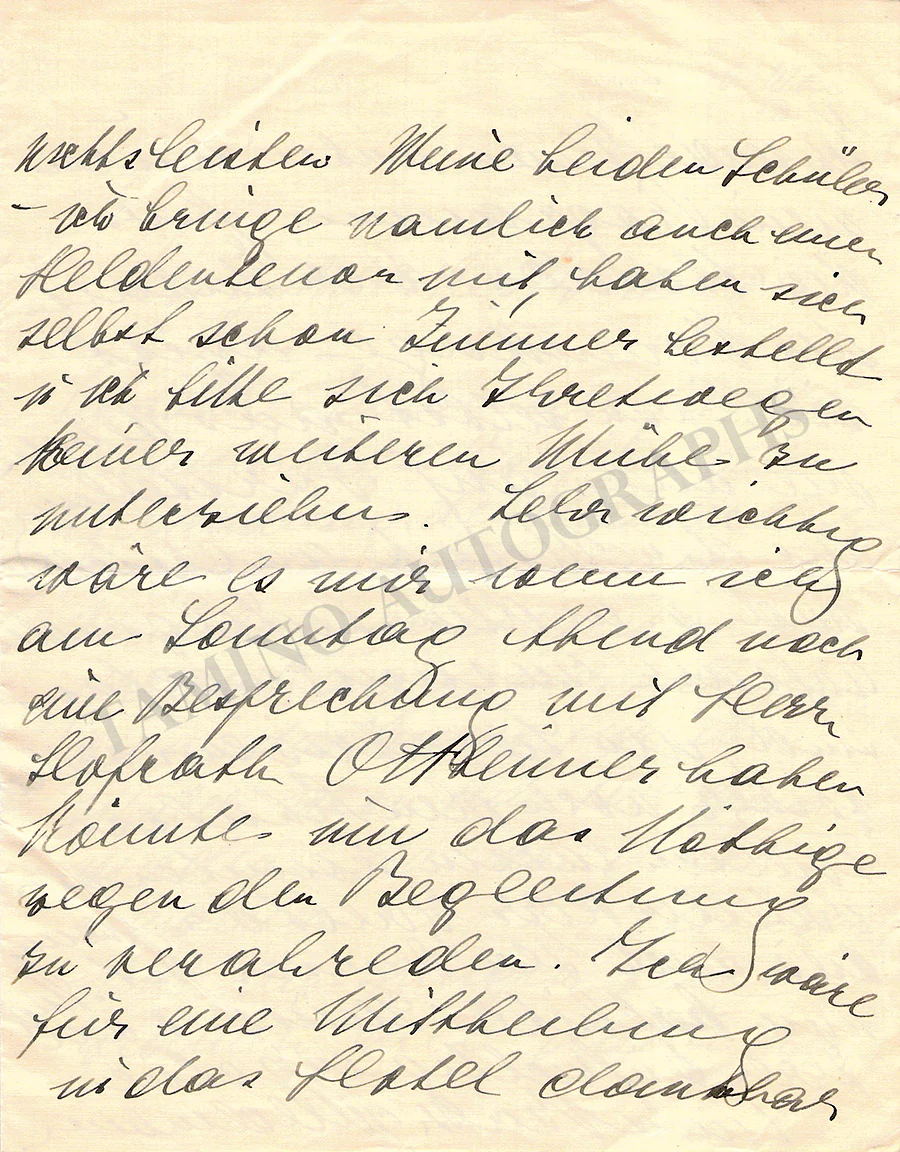 nichts leisten. Meine beiden Schüler
– ich bringe nämlich auch einen
Heldentenor mit, haben sich
selbst schon Zimmer bestellt
u ich bitte sich Ihretwegen
keiner weiteren Mühe zu
unterziehen. Sehr wichtig
wäre es mir wenn ich
am Sonntag Abend noch
eine Besprechung mit Herrn
Hofrath Ottheimer haben
könnte um das Nöthige
wegen der Begleitung
zu verabreden. Ich wäre
für eine Mittheilung
in das Hotel dankbar
TAMINO AUTOGRAPHS